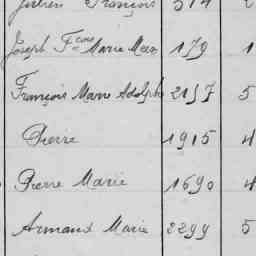 Julien François 314 2
Joseph Fcois Marie 179 1
François Marie Adolphe 2157 5
Pierre 1915 4
Pierre Marie 1690 4
Armand Marie 2299 5